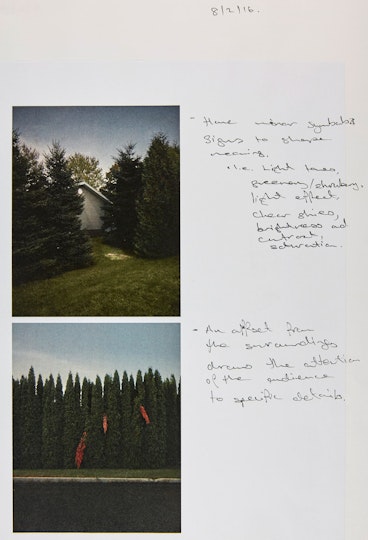 8/2/16.
- Have minor symbols
signs to shape
meaning.
• i.e. light tones,
greenery/shrubbery,
light effect,
clear skies,
brightness and
contrast,
saturation.
- An offset from
the surroundings
draws the attention
of the audience
to specific details.